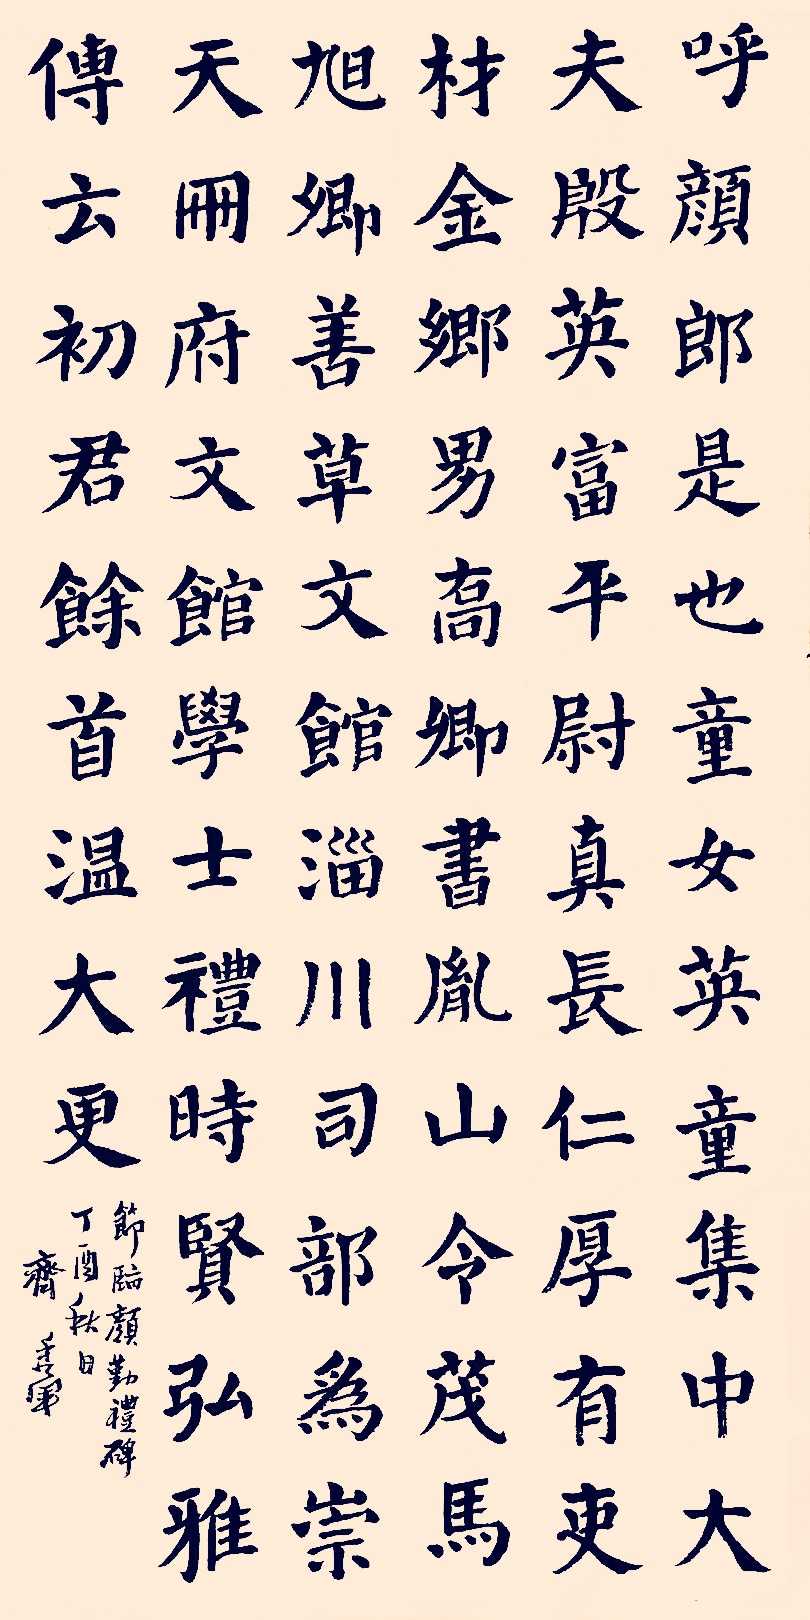 呼顔郎是也童女英童集中大
夫殷英富平尉真長仁厚有吏
材金鄉男髙卿書胤山令茂馬
旭卿善草文館淄川司部為崇
天冊府文館學士禮時賢弘雅
傳云初君餘首温大更
節臨顔勤禮碑
丁酉秋日
齊